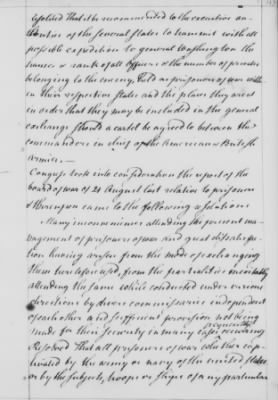 Resolved that it be recommended to the executive au-
thorities of the several states to transmit with all
possible expedition to general Washington the
names & ranks of all officers & the number of privates
belonging to the enemy, held as prisoners of war with
in their respective states and the places they are at
in order that they may be included in the general
exchange should a cartel be agreed to between the
commanders in chief of the American & British
armies.—
Congress took into consideration the report of the
board of war of 21 August last relative to prisoners
& thereupon came to the following resolutions
Many inconveniences attending the present ma-
nagement of prisoners of war and great dissatisfac-
tion having arisen from the mode of exchanging
them heretofore used, from the partialities
attending the same while conducted under various
directions by divers commissaries independent
of each other and sufficient provision not being
made for their security in many cases frequently recurring
Resolved That all prisoners of war whether cap-
tivated by the army or navy of the united states
or by the subjects, troops or ships of any particular